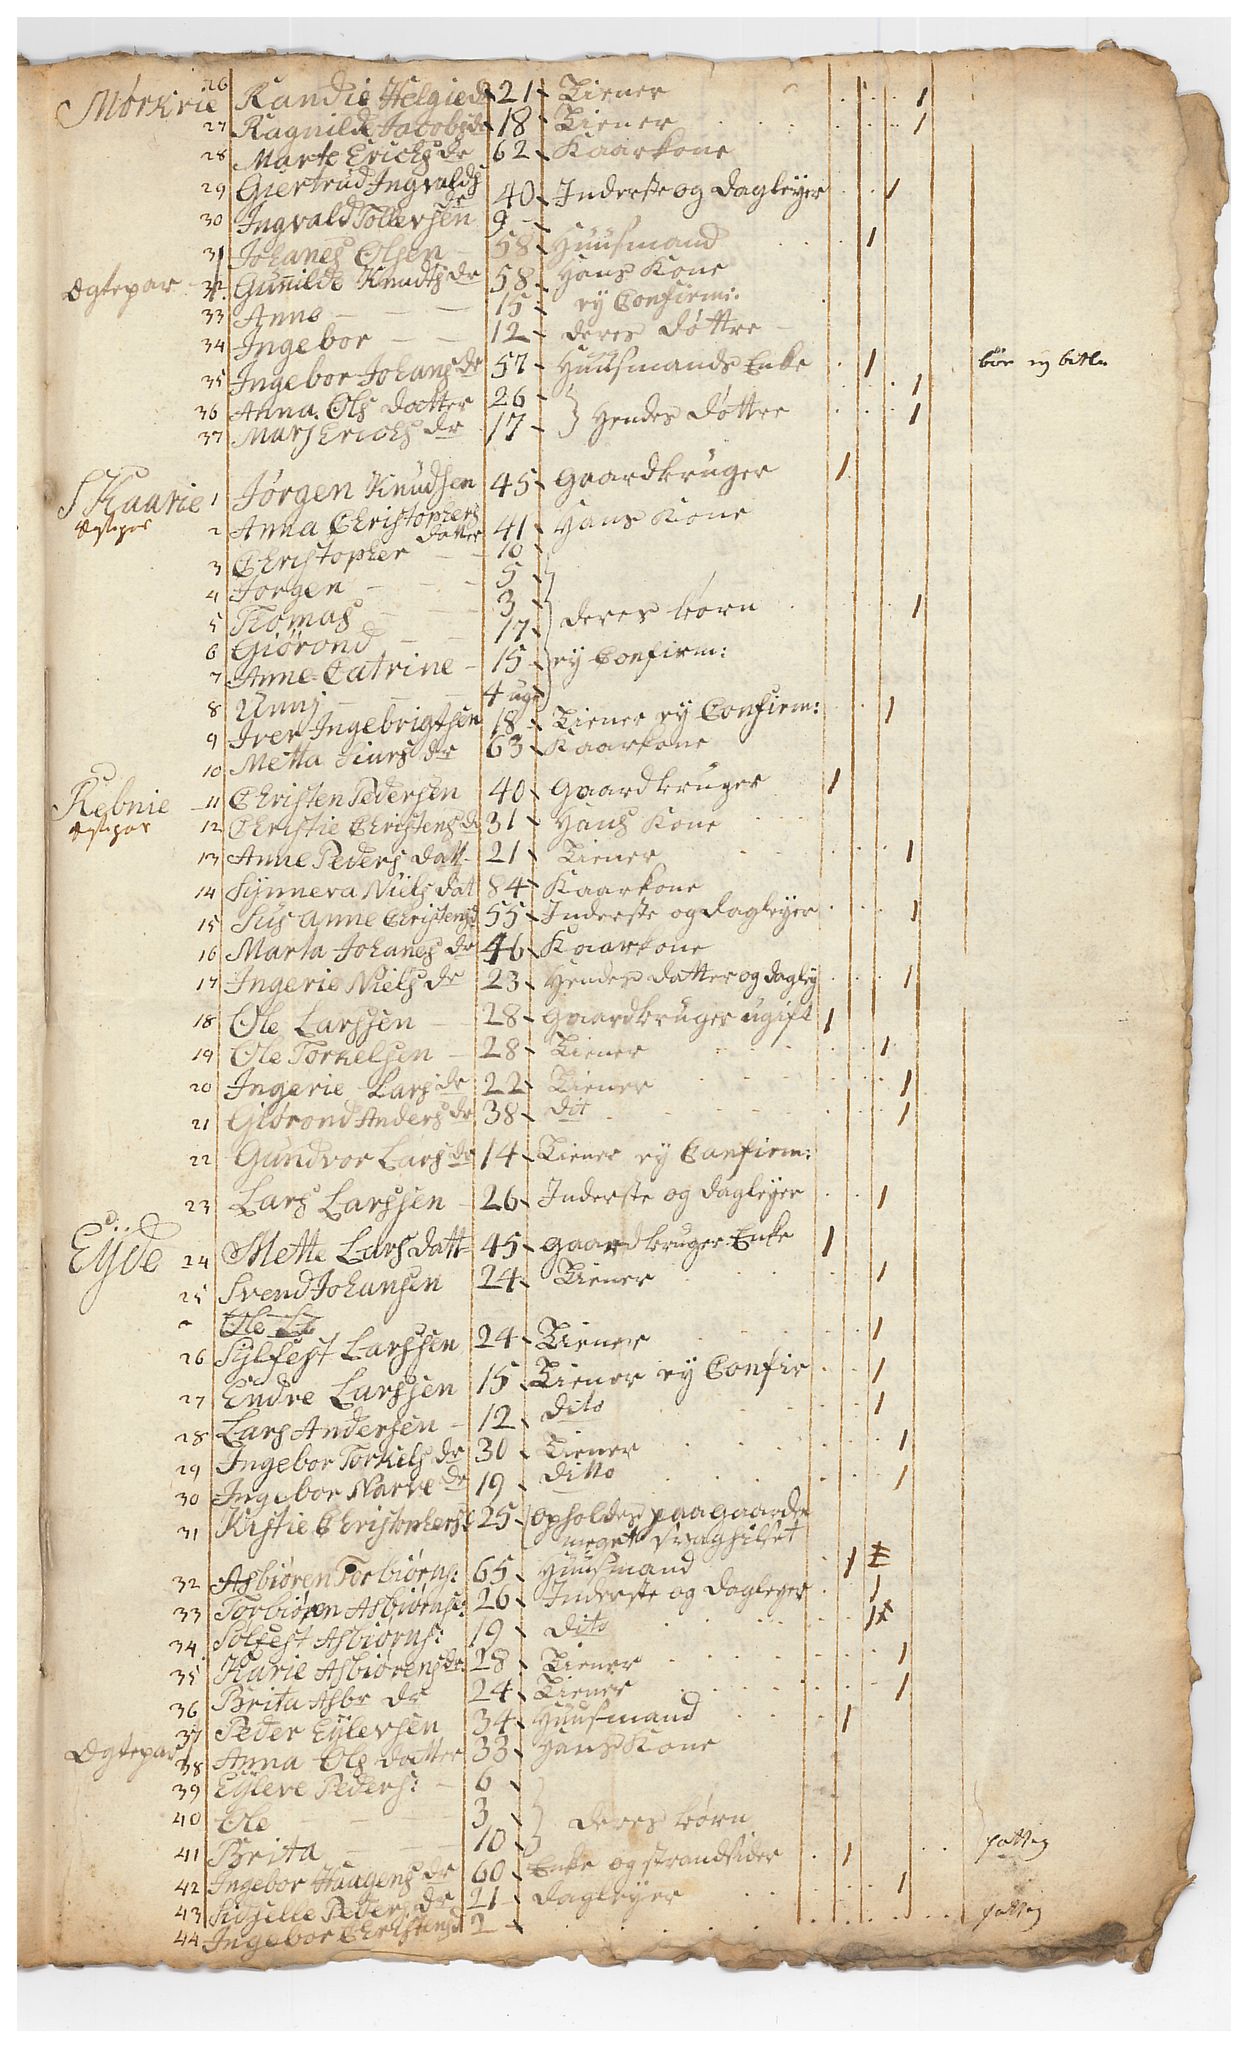 Mørkrie 26 Randie Helgied 21 Tiener 1
27 Ragnilde Jacobsdr 18 Tiener 1
28 Marte Ericks dr 62 Kaarkone
29 Giertrud Ingvalds dr 40 Inderste og dagleyer 1
30 Ingvald Tollevsen 9
31 Johanes Olsen 58 Huusmand 1
Ægtepar 32 Gunnilde Knudts dr 58 Hans Kone
33 Anne 15 ey Confirm:
34 Ingebor 12 deres døttre
35 Ingebor Johans dr 57 Huusmands Enke 1
36 Anna Ols datter 26 1
37 Mars Ericks dr 17 } Hendes døttre 1
Skaarie 1 Jørgen Knudsen 45 Gaardbruger 1
Ægtepar 2 Anna Christophers datter 41 Hans Kone
3 Christopher 10
4 Jørgen 5
5 Tomas 3 deres børn 1
6 Giørond 17
7 Anne Catrine 15 ey Confirm:
8 Unnj 4 uger
9 Iver Ingebrigtsen 18 Tiener ey Confirm: 1
10 Metta Siurs dr 63 Kaarkone
Rebnie 11 Christen Pedersen 40 Gaardbruger 1
Ægtepar 12 Christie Christens d 31 Hans Kone
13 Anne Peders datt 21 Tiener 1
14 Synneva Niels dat 84 Kaarkone
15 Sus anne Christensd 55 Inderste og dagleyer 1
16 Marta Johanes dr 46 Kaarkone
17 Ingerie Niels dr 23 Hendes datter og dagley 1
18 Ole Larssen 28 Gaardbruger ugift 1
19 Ole Torkelsen 28 Tiener 1
20 Ingerie Lars dr 22 Tiener 1
21 Giørond Anders dr 38 dit 1
22 Gundvor Lars dr 14 Tiener ey Confirm:
23 Lars Larssen 26 Inderste og dagleyer 1
Eÿde 24 Mette Lars datt 45 Gaardbruger Enke 1
25 Svend Johansen 24 Tiener 1
Ole
26 Sylfest Larssen 24 Tiener 1
27 Endre Larssen 15 Tiener ey Confir 1
28 Lars Andersen 12 dito 1
29 Ingebor Torkels dr 30 Tiener 1
30 Ingebor Narve dr 19 ditto 1
31 Kistie Christophers 25 opholder paa gaarden
meget svaghilset
32 Asbiøren Torbiørns: 65 Huusmand 1
33 Torbiøren Asbiørns: 26 Inderste og dagleyer 1
34 Sølfest Asbiørns: 19 dito 1
35 Karie Asbiørens dr 28 Tiener 1
36 Brita Asbr dr 24 Tiener 1
37 Peder Eÿlevsen 34 Huusmand 1
Ægtepar 38 Anna Ols datter 33 Hans Kone
39 Eÿleve Peders: 6
40 Ole 3 deres børn
41 Brita 10
42 Ingebor Haagens dr 60 Enke og strandsider 1
43 Sidselle Peders dr 21 dagleyer 1
44 Ingebor Christensd 2